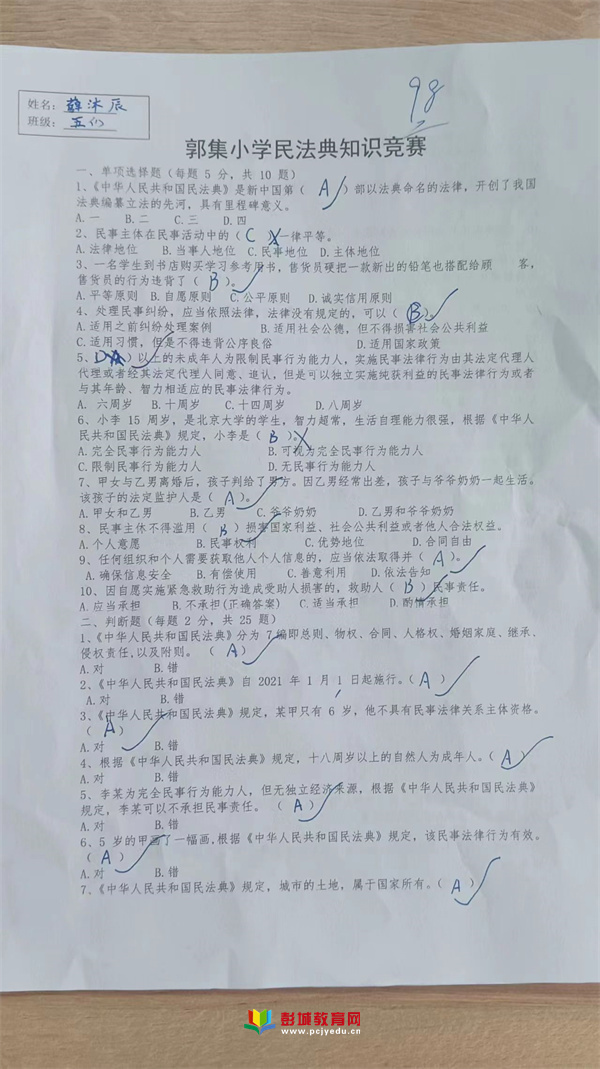 姓名：薛沐辰
班级：五(1)
98
郭集小学民法典知识竞赛
一、单项选择题（每题 5 分，共 10 题）
1、《中华人民共和国民法典》是新中国第（ A ）部以法典命名的法律，开创了我国
法典编纂立法的先河，具有里程碑意义。
A. 一 B.二 C.三 D.四
2、民事主体在民事活动中的（ C ）一律平等。
A.法律地位 B.当事人地位 C.民事地位 D.主体地位
3、一名学生到书店购买学习参考用书，售货员硬把一款新出的铅笔也搭配给顾 客，
售货员的行为违背了（ B ）。
A.平等原则 B.自愿原则 C.公平原则 D.诚实信用原则
4、处理民事纠纷，应当依照法律，法律没有规定的，可以（ B ）。
A.适用之前纠纷处理案例 B.适用社会公德，但不得损害社会公共利益
C.适用习惯，但是不得违背公序良俗 D.适用国家政策
5、（ D ）以上的未成年人为限制民事行为能力人，实施民事法律行为由其法定代理人
代理或者经其法定代理人同意、追认，但是可以独立实施纯获利益的民事法律行为或者
与其年龄、智力相适应的民事法律行为。
A. 六周岁 B.十周岁 C.十四周岁 D.八周岁
6、小李 15 周岁，是北京大学的学生，智力超常，生活自理能力很强，根据《中华人
民共和国民法典》规定，小李是（ B ）。
A.完全民事行为能力人 B.可视为完全民事行为能力人
C.限制民事行为能力人 D.无民事行为能力人
7、甲女与乙男离婚后，孩子判给了男方。因乙男经常出差，孩子与爷爷奶奶一起生活。
该孩子的法定监护人是（ A ）。
A.甲女和乙男 B.乙男 C.爷爷奶奶 D.乙男和爷爷奶奶
8、民事主体不得滥用（ B ）损害国家利益、社会公共利益或者他人合法权益。
A.个人意愿 B.民事权利 C.优势地位 D.合同自由
9、任何组织和个人需要获取他人个人信息的，应当依法取得并（ A ）。
A.确保信息安全 B.有偿使用 C.善意利用 D.依法告知
10、因自愿实施紧急救助行为造成受助人损害的，救助人（ B ）民事责任。
A.应当承担 B.不承担(正确答案) C.适当承担 D.酌情承担
二、判断题（每题 2 分，共 25 题）
1、《中华人民共和国民法典》分为 7 编即总则、物权、合同、人格权、婚姻家庭、继承、
侵权责任,以及附则。 （ A ）
A.对 B.错
2、《中华人民共和国民法典》自 2021 年 1 月 1 日起施行。（ A ）
A.对 B.错
3、《中华人民共和国民法典》规定，某甲只有 6 岁，他不具有民事法律关系主体资格。
（ A ）
A.对 B.错
4、根据《中华人民共和国民法典》规定，十八周岁以上的自然人为成年人。（ A ）
A.对 B.错
5、李某为完全民事行为能力人，但无独立经济来源，根据《中华人民共和国民法典》
规定，李某可以不承担民事责任。 （ A ）
A.对 B.错
6、5 岁的甲画了一幅画,根据《中华人民共和国民法典》规定，该民事法律行为有效。
（ A ）
A.对 B.错
7、《中华人民共和国民法典》规定，城市的土地，属于国家所有。（ A ）
彭城教育网
www.pcjyedu.cn